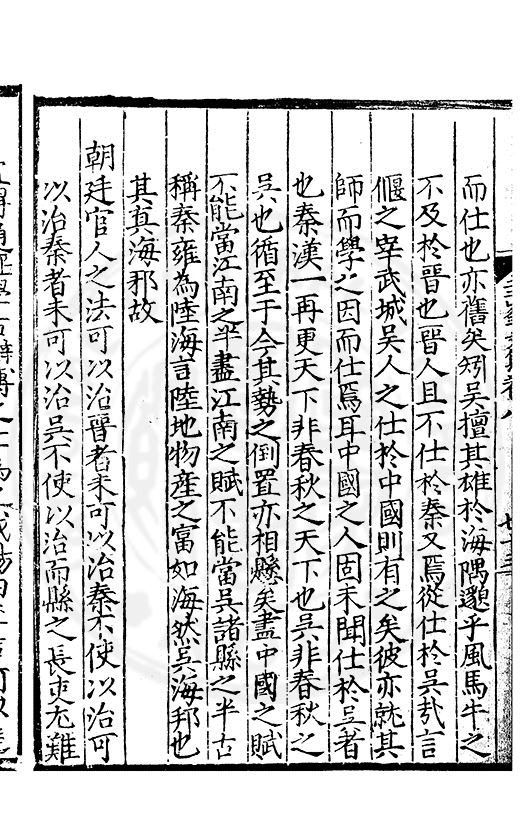 而仕也亦舊矣矧吳擅其雄於海隅邈乎風馬牛之
不及於晉也晉人且不仕於秦又焉從仕於吳哉言
偃之宰武城吳人之仕於中國則有之矣彼亦就其
師而學之因而仕焉耳中國之人固未聞仕於吳者
也秦漢一再更天下非春秋之天下也吳非春秋之
吳也循至于今其勢之倒置亦相懸矣盡中國之賦
不能當江南之半盡江南之賦不能當吳諸縣之半古
稱秦雍為陸海言陸地物產之富如海然吳海邦也
其真海邪故
朝廷官人之法可以治晉者未可以治秦不使以治可
以治秦者未可以治吳不使以治而縣之長吏尤難